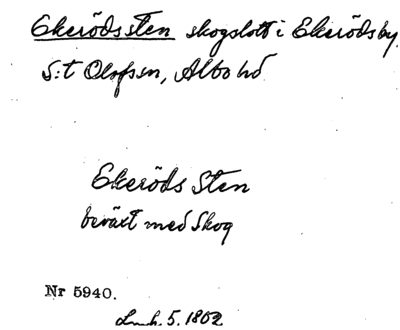 Ekerödssten skogslott i Ekeröds by,
S:t Olofs sn, Albo hd
Ekeröds Sten
beväxt med Skog
Nr 5940.
Lmh. 5. 1802